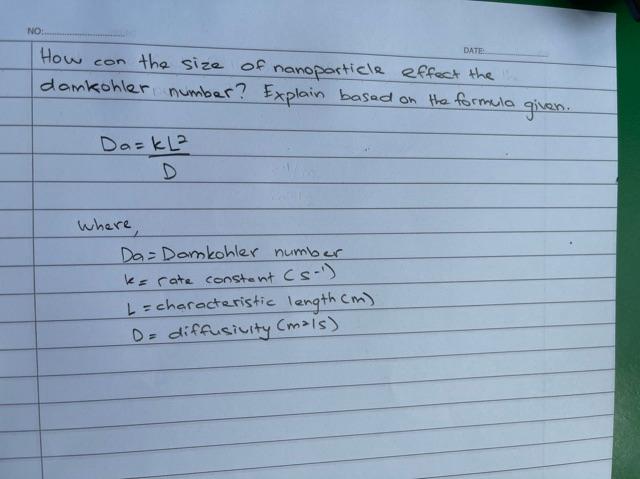 NO:
DATE:
How can the size of nanoparticle effect the
damkohler number? Explain based on the formula given.
Da = kL²
D
where,
Da = Damkohler number
k = rate constant (s-1)
L = characteristic length (m)
D = diffusivity (m2/s)